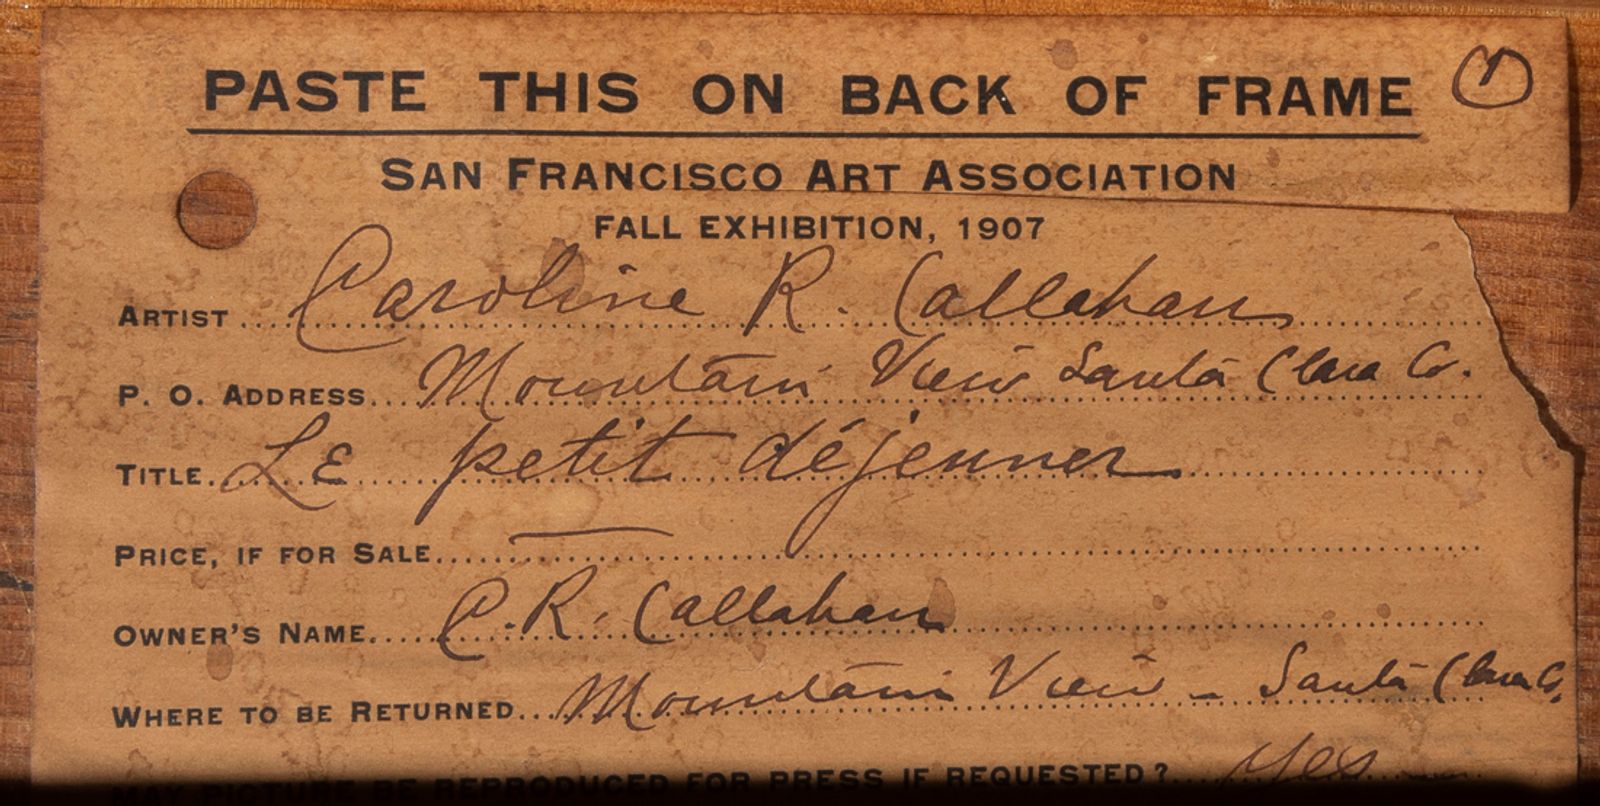 PASTE THIS ON BACK OF FRAME
1
SAN FRANCISCO ART ASSOCIATION
FALL EXHIBITION, 1907
ARTIST Caroline R. Callahan
P. O. ADDRESS Mountain View Santa Clara Co.
TITLE Le petit déjeuner
PRICE, IF FOR SALE —
OWNER'S NAME C. R. Callahan
WHERE TO BE RETURNED Mountain View - Santa Clara Co.
MAY PICTURE BE REPRODUCED FOR PRESS IF REQUESTED? Yes